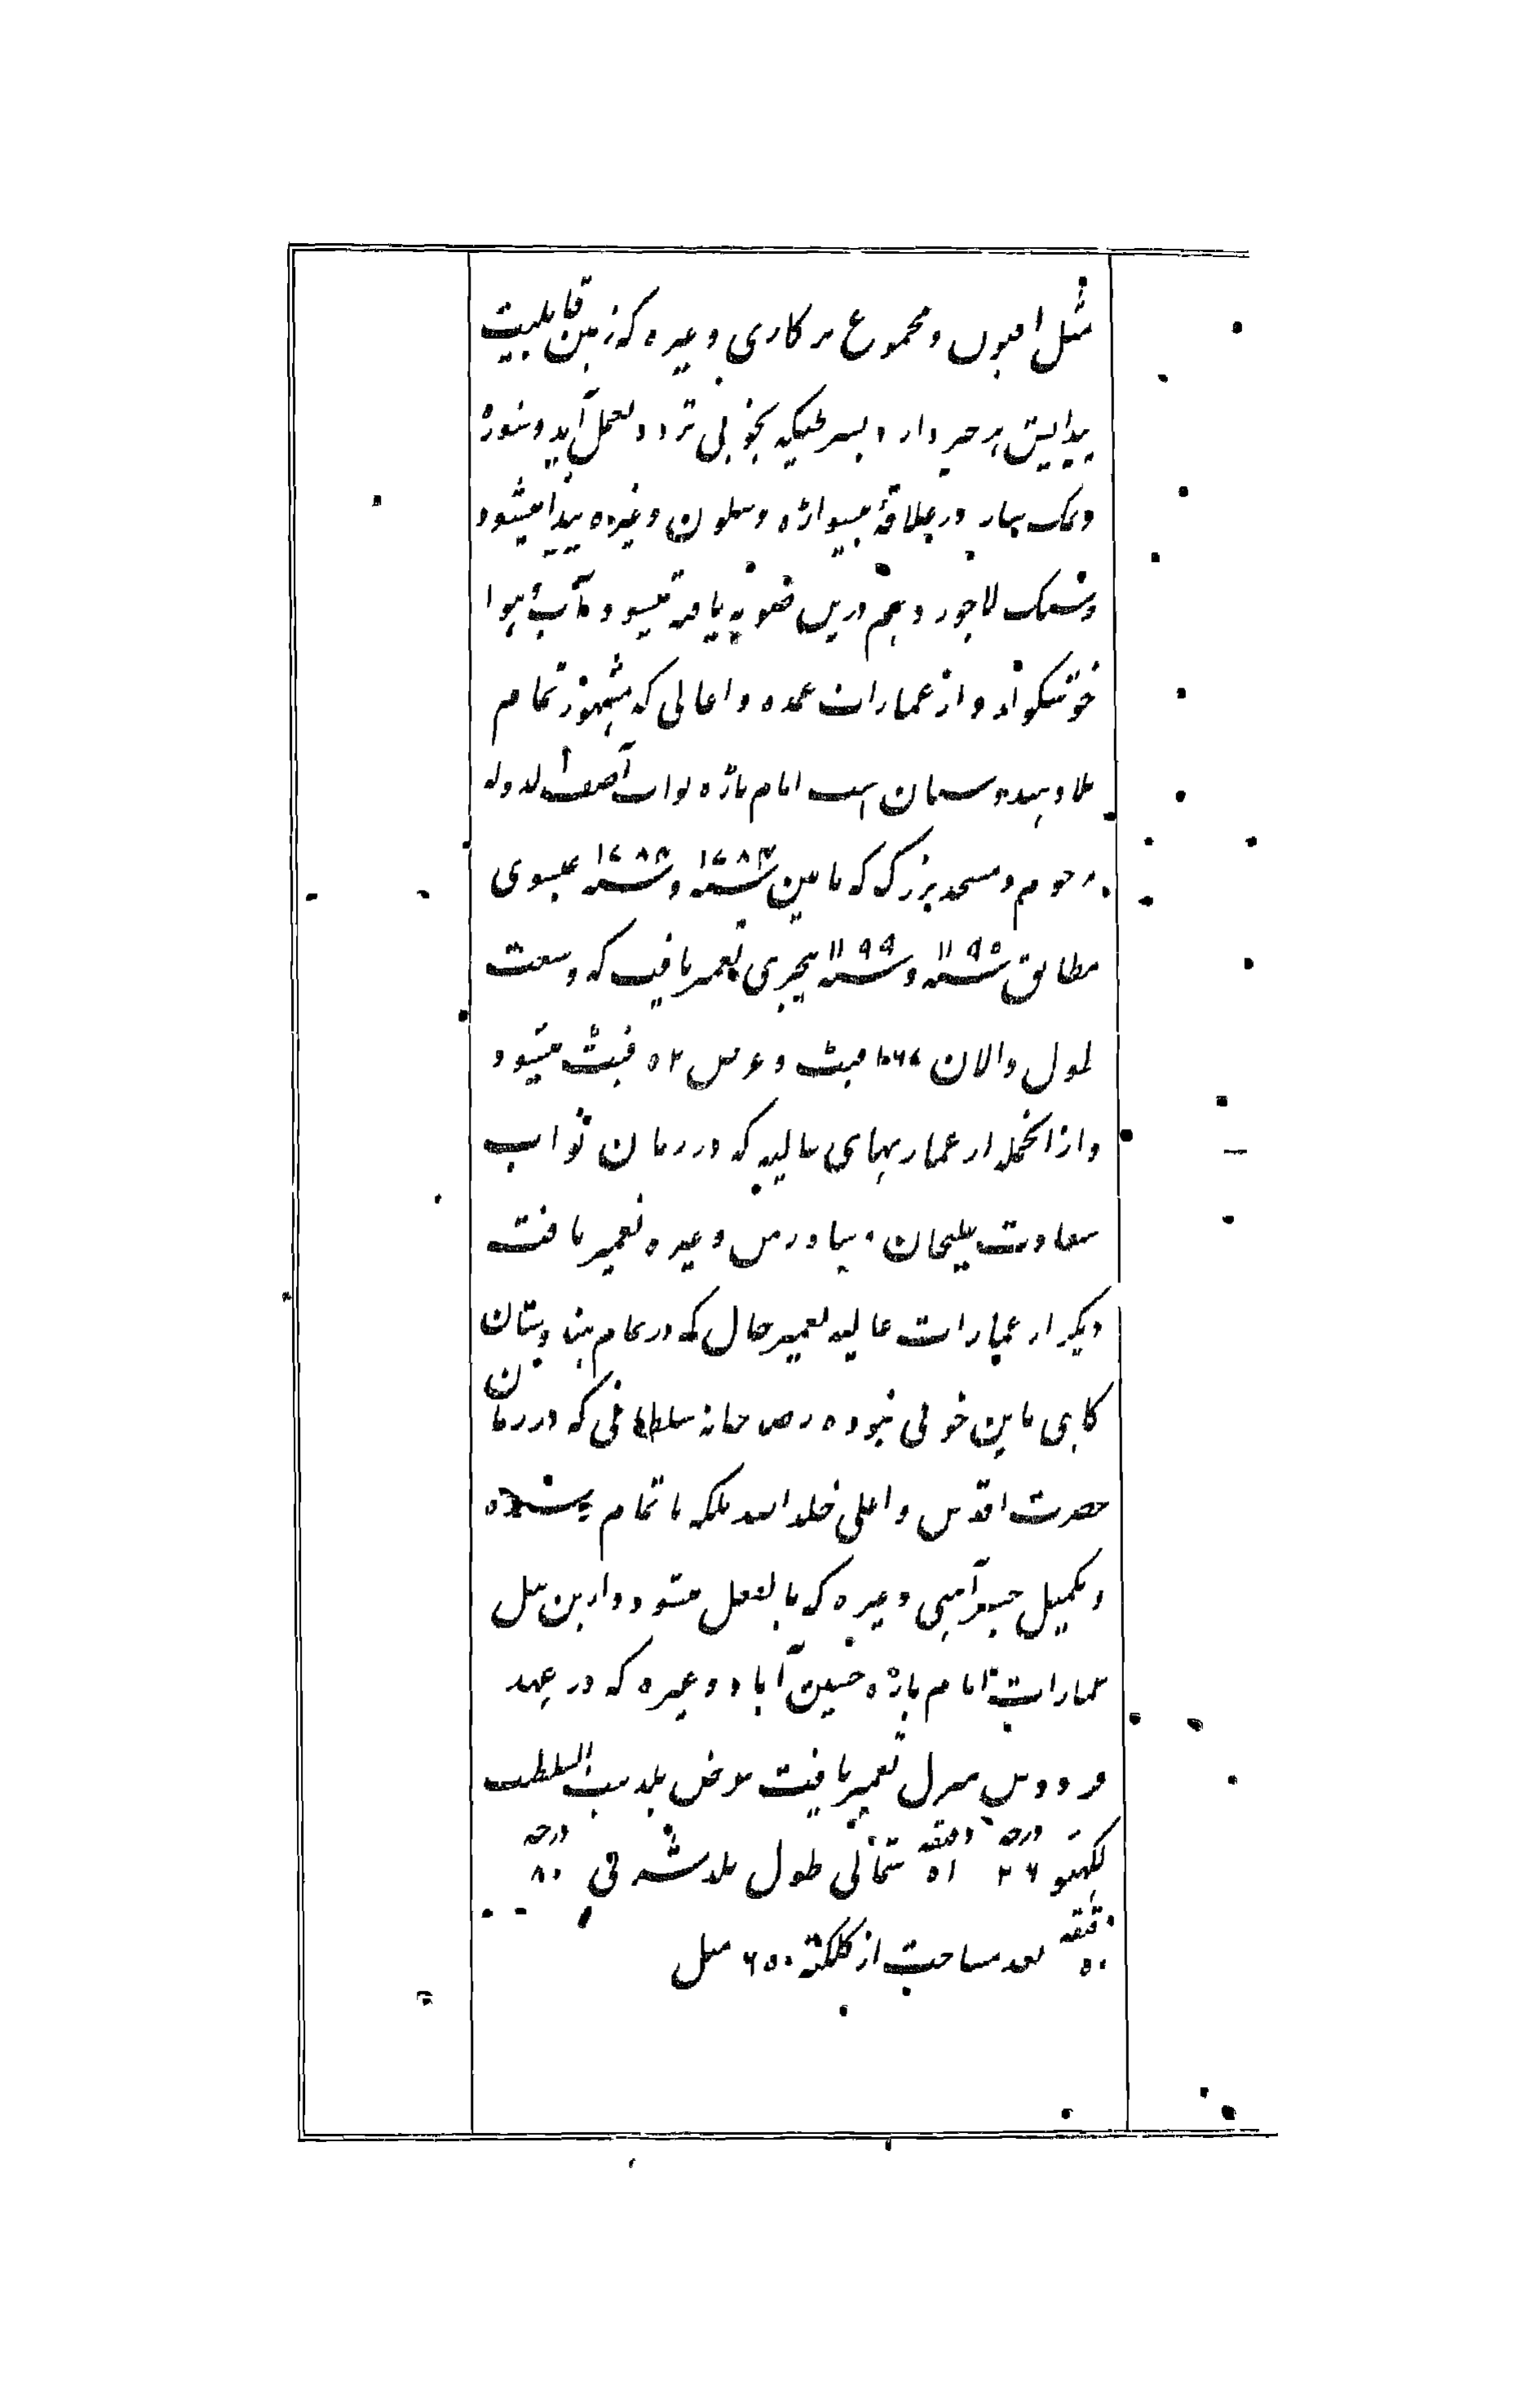 مثل افیون و مجموع ترکاری و غیره که زمین قابلیت
پیدایش هر چیز دارد بشرطیکه بخوبی تردد بعمل آید و شوره
و نمک بسیار در علاقهٔ بیسواڑه و سلون و غیره پیدا میشود
و سنگ لاجورد هم درین صوبه یافته میشود و آب و هوا
خوشگوار و از عمارات عمده و اعالی که مشهور تمام
بلاد هندوستان است امام باڑه نواب آصف الدوله
مرحوم و مسجد بزرگ که مابین سنه ۱۷۸۳ و سنه ۱۷۸۴ عیسوی
مطابق سنه ۱۱۹۵ و سنه ۱۱۹۹ هجری تعمیر یافت که وسعت
طول دالان ۱۶۷ فیٹ و عرض ۵۲ فیٹ میشود
و ازانجمله از عمارتهای عالیه که در زمان نواب
سعادت علیخان بهادر و غیره تعمیر یافت
دیگر از عمارات عالیه تعمیر حال که در تمام هندوستان
گاهی باین خوبی نبوده رصد خانه سلطانی که در زمان
حضرت اقدس و اعلی خلد الله ملکه با تمام رسیده
و تکمیل جسر آهنی و غیره که بالفعل میشود و ازین قبیل
عمارات امام باڑه حسین آباد و غیره که در عهد
فردوس منزل تعمیر یافت عرض بلد بیت السلطنت
لکهنو ۲۶ درجه ۵۱ دقیقه شمالی طول بلد شرقی ۸۰ درجه
۵۰ دقیقه بعد مساحت از کلکته ۶۵۰ میل